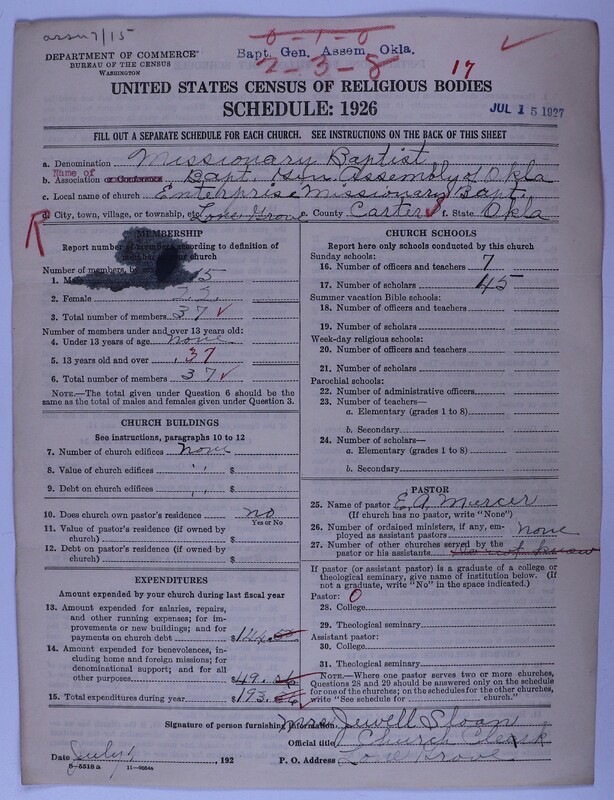 assn 7/15
0-1-0
Bapt. Gen. Assem. Okla.
2-3-8
17
DEPARTMENT OF COMMERCE
BUREAU OF THE CENSUS
WASHINGTON
UNITED STATES CENSUS OF RELIGIOUS BODIES
SCHEDULE: 1926
JUL 15 1927
FILL OUT A SEPARATE SCHEDULE FOR EACH CHURCH. SEE INSTRUCTIONS ON THE BACK OF THIS SHEET
a. Denomination Missionary Baptist
Name of
b. Association or Conference Bapt. Gen Assembly of Okla
c. Local name of church Enterprise Missionary Bapt.
R
d. City, town, village, or township, etc. Lone Grove e. County Carter f. State Okla
MEMBERSHIP
Report number of members according to definition of
member in your church
Number of members, by
1. Male 15
2. Female 22
3. Total number of members 37 ✓
Number of members under and over 13 years old:
4. Under 13 years of age none
5. 13 years old and over 37
6. Total number of members 37 ✓
NOTE.—The total given under Question 6 should be the
same as the total of males and females given under Question 3.
CHURCH BUILDINGS
See instructions, paragraphs 10 to 12
7. Number of church edifices none
8. Value of church edifices " $
9. Debt on church edifices " $
10. Does church own pastor's residence no
Yes or No
11. Value of pastor's residence (if owned by
church) $
12. Debt on pastor's residence (if owned by
church) $
EXPENDITURES
Amount expended by your church during last fiscal year
13. Amount expended for salaries, repairs,
and other running expenses; for im-
provements or new buildings; and for
payments on church debt $144.
14. Amount expended for benevolences,
including home and foreign missions; for
denominational support; and for all
other purposes $49.
15. Total expenditures during year $193.
CHURCH SCHOOLS
Report here only schools conducted by this church
Sunday schools:
16. Number of officers and teachers 7
17. Number of scholars 45
Summer vacation Bible schools:
18. Number of officers and teachers
19. Number of scholars
Week-day religious schools:
20. Number of officers and teachers
21. Number of scholars
Parochial schools:
22. Number of administrative officers
23. Number of teachers—
a. Elementary (grades 1 to 8)
b. Secondary
24. Number of scholars—
a. Elementary (grades 1 to 8)
b. Secondary
PASTOR
25. Name of pastor E. A. Mercer
(If church has no pastor, write "None")
26. Number of ordained ministers, if any, em-
ployed as assistant pastors none
27. Number of other churches served by the
pastor or his assistants
If pastor (or assistant pastor) is a graduate of a college or
theological seminary, give name of institution below. (If
not a graduate, write "No" in the space indicated.)
Pastor: 0
28. College
29. Theological seminary
Assistant pastor:
30. College
31. Theological seminary
NOTE.—Where one pastor serves two or more churches,
Questions 28 and 29 should be answered only on the schedule
for one of the churches; on the schedules for the other churches,
write "See schedule for church."
Signature of person furnishing information Mrs Jewell Sloan
Official title Church Clerk
Date July 1, 192 P. O. Address Lone Grove
8-5518 a 11-9554a